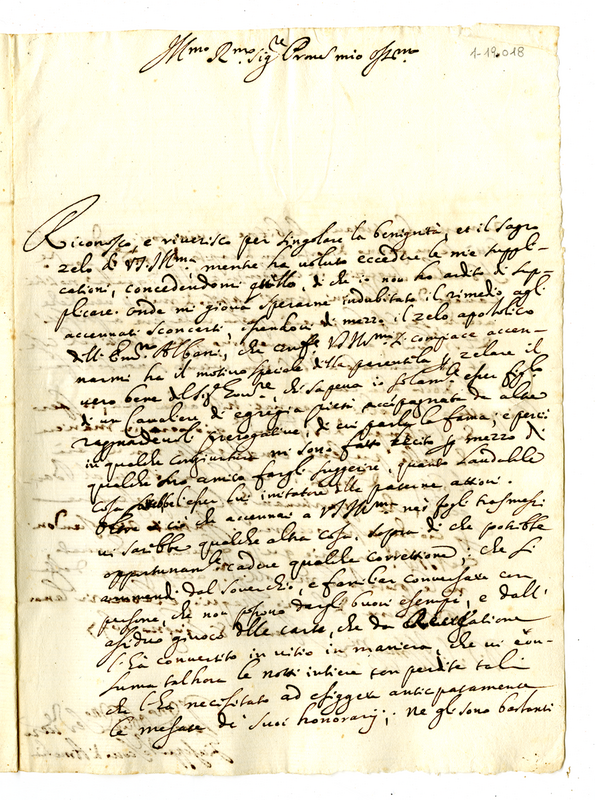 Ill.mo R.mo Sig.re Pron'e mio Oss.mo
1-19.018
Riconosco, e riverisco per singolare la benignità, et il sagro
zelo di V.S. Ill.ma mentre ha voluto eccedere le mie suppli-
cationi, concedendomi quello, di che io non ho ardito di sup-
plicare. Onde mi giova sperarne indubitato il rimedio agli
accennati sconcerti, di mezzo il zelo apostolico
dell' Em.mo Albani, che V.S. Ill.ma si compiace accen-
narmi ha il motivo speciale della parentela di zelare il
vero bene del Sig.r di sapeva io solam.te esser figlo
di un Cavaliere di egregia pietà accompagnata da altre
ragguardevoli prerogative, di cui parla la fama; e perciò
in qualche congiuntura mi sono fatto lecito p mezzo di
qualche suo amico fargli suggerire, quanto laudabile
cosa sarebbe esser lui imitatore delle paterne attioni.
Oltre a ciò che accennai a V.S. Ill.ma nei fogli trasmessi
vi sarebbe qualche altra cosa, sopra di che potrebbe
opportunam.te cadere qualche correttione; che si
dal soverchio, e familiar conversare con
persone, che non possono dargli buoni esempi, e dall'
assiduo giuoco delle carte, che da Recreatione
l'ha convertito in vitio in maniera, che vi con-
suma talhora le notti intiere con perdite tali
che l'ha necessitato ad esiggere anticipatamente
le mesate di suoi honorarij; ne gli sono bastanti